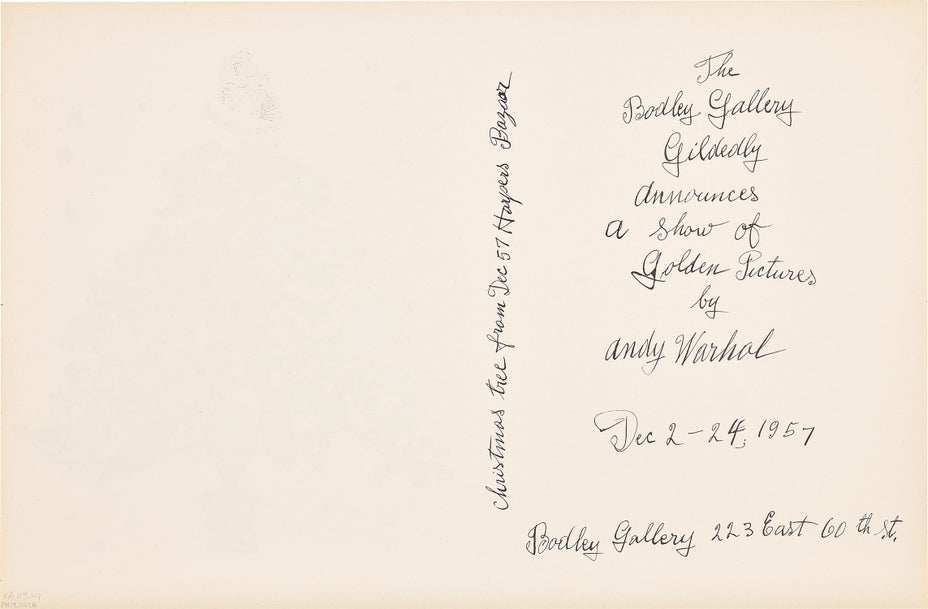 Christmas tree from Dec 57 Harpers Bazaar
The
Bodley Gallery
Gildedly
announces
a show of
Golden Pictures
by
andy Warhol
Dec 2-24, 1957
Bodley Gallery 223 East 60 th st.